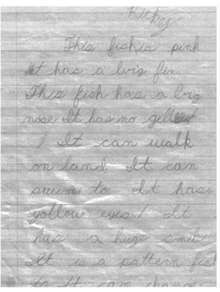 Rickey
This fish is pink
It has a big fin.
This fish has a big
nose It has no gilles
It can walk
on land It can
swim to It has
yellow eyes! It
has a huge smile
It is a pattern fish
to It can change